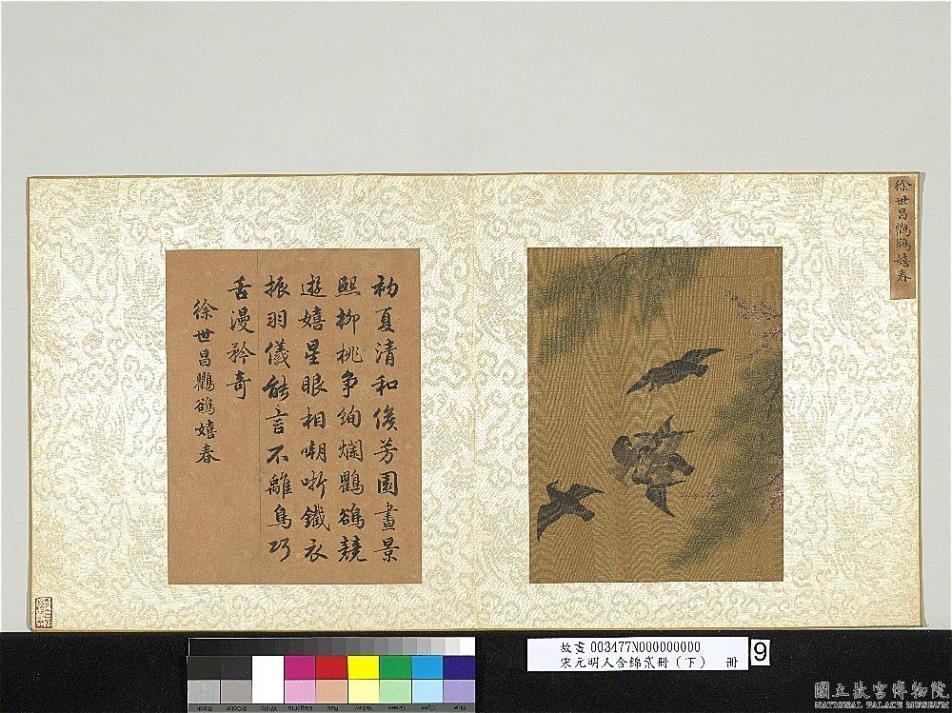 徐世昌鸜鵒嬉春
初夏清和候芳園晝景
熙柳桃爭絢爛鸜鵒競
遊嬉星眼相嘲哳鐵衣
振羽儀能言不離鳥巧
舌漫矜奇
徐世昌鸜鵒嬉春
故畫 003477N000000000
宋元明人合錦貳冊(下) 冊
9
Black
3/Color
White
Magenta
Red
Yellow
Green
Cyan
Blue
國立故宮博物院
NATIONAL PALACE MUSEUM